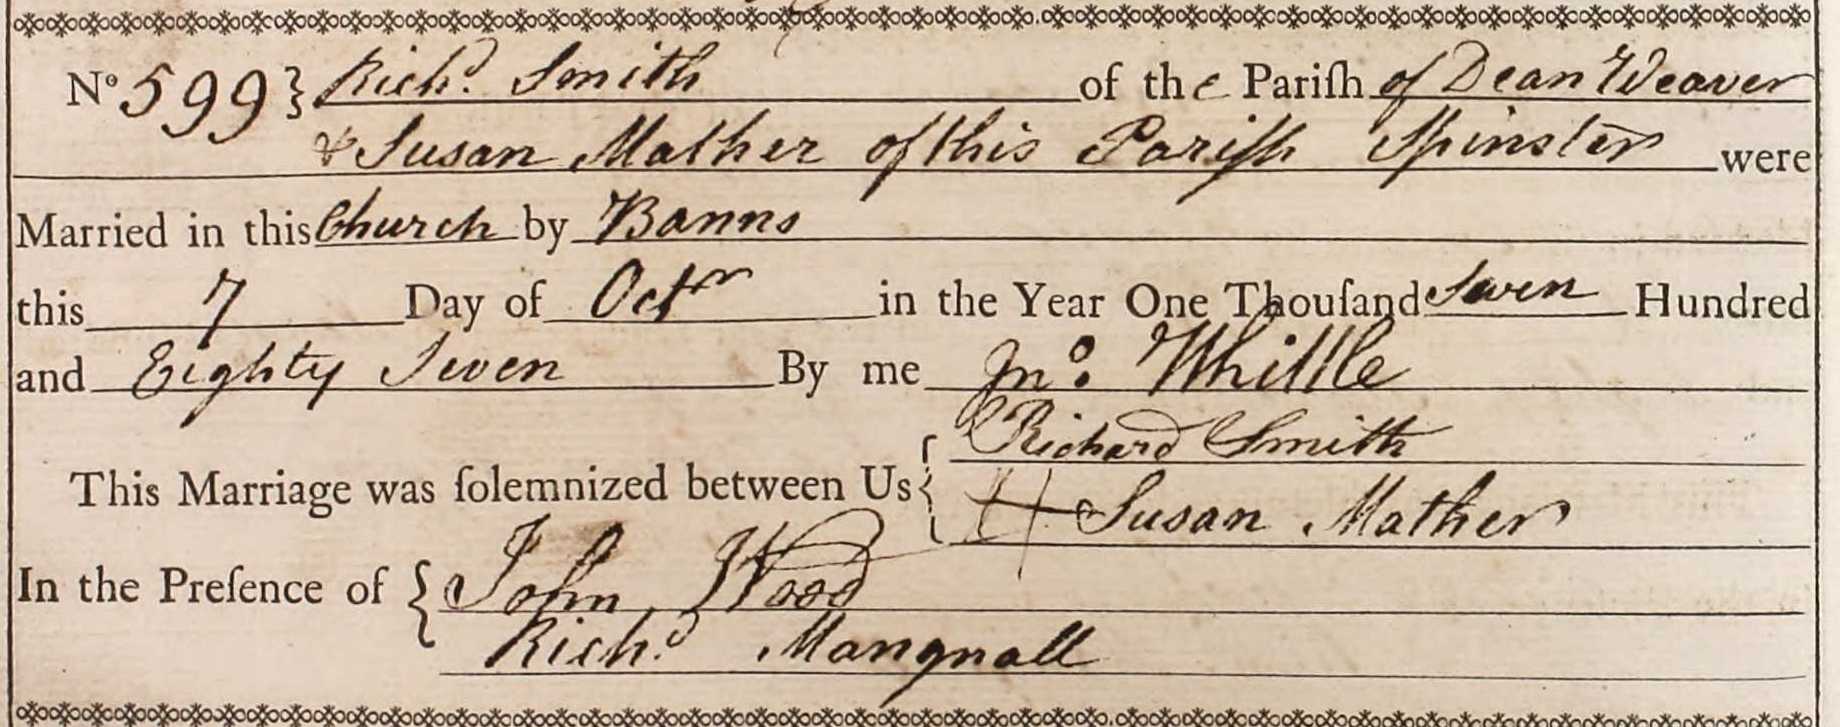 No 599 } Richd. Smith of the Pariſh of Dean Weaver
& Susan Mather of this Pariſh Spinster were
Married in this Church by Banns
this 7 Day of Octr in the Year One Thouſand Seven Hundred
and Eighty Seven By me Jno. Whittle
Richard Smith
This Marriage was ſolemnized between Us {
+ Susan Mather
In the Preſence of { John Wood
Richd. Mangnall